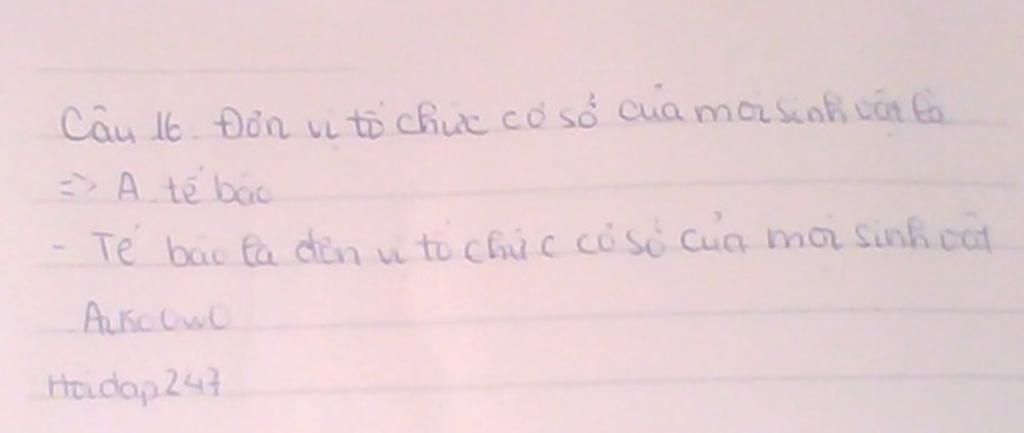 Câu 16. Đơn vị tổ chức cơ sở của mọi sinh vật là
=> A. tế bào
- Tế bào là đơn vị tổ chức cơ sở của mọi sinh vật
Hoidap247